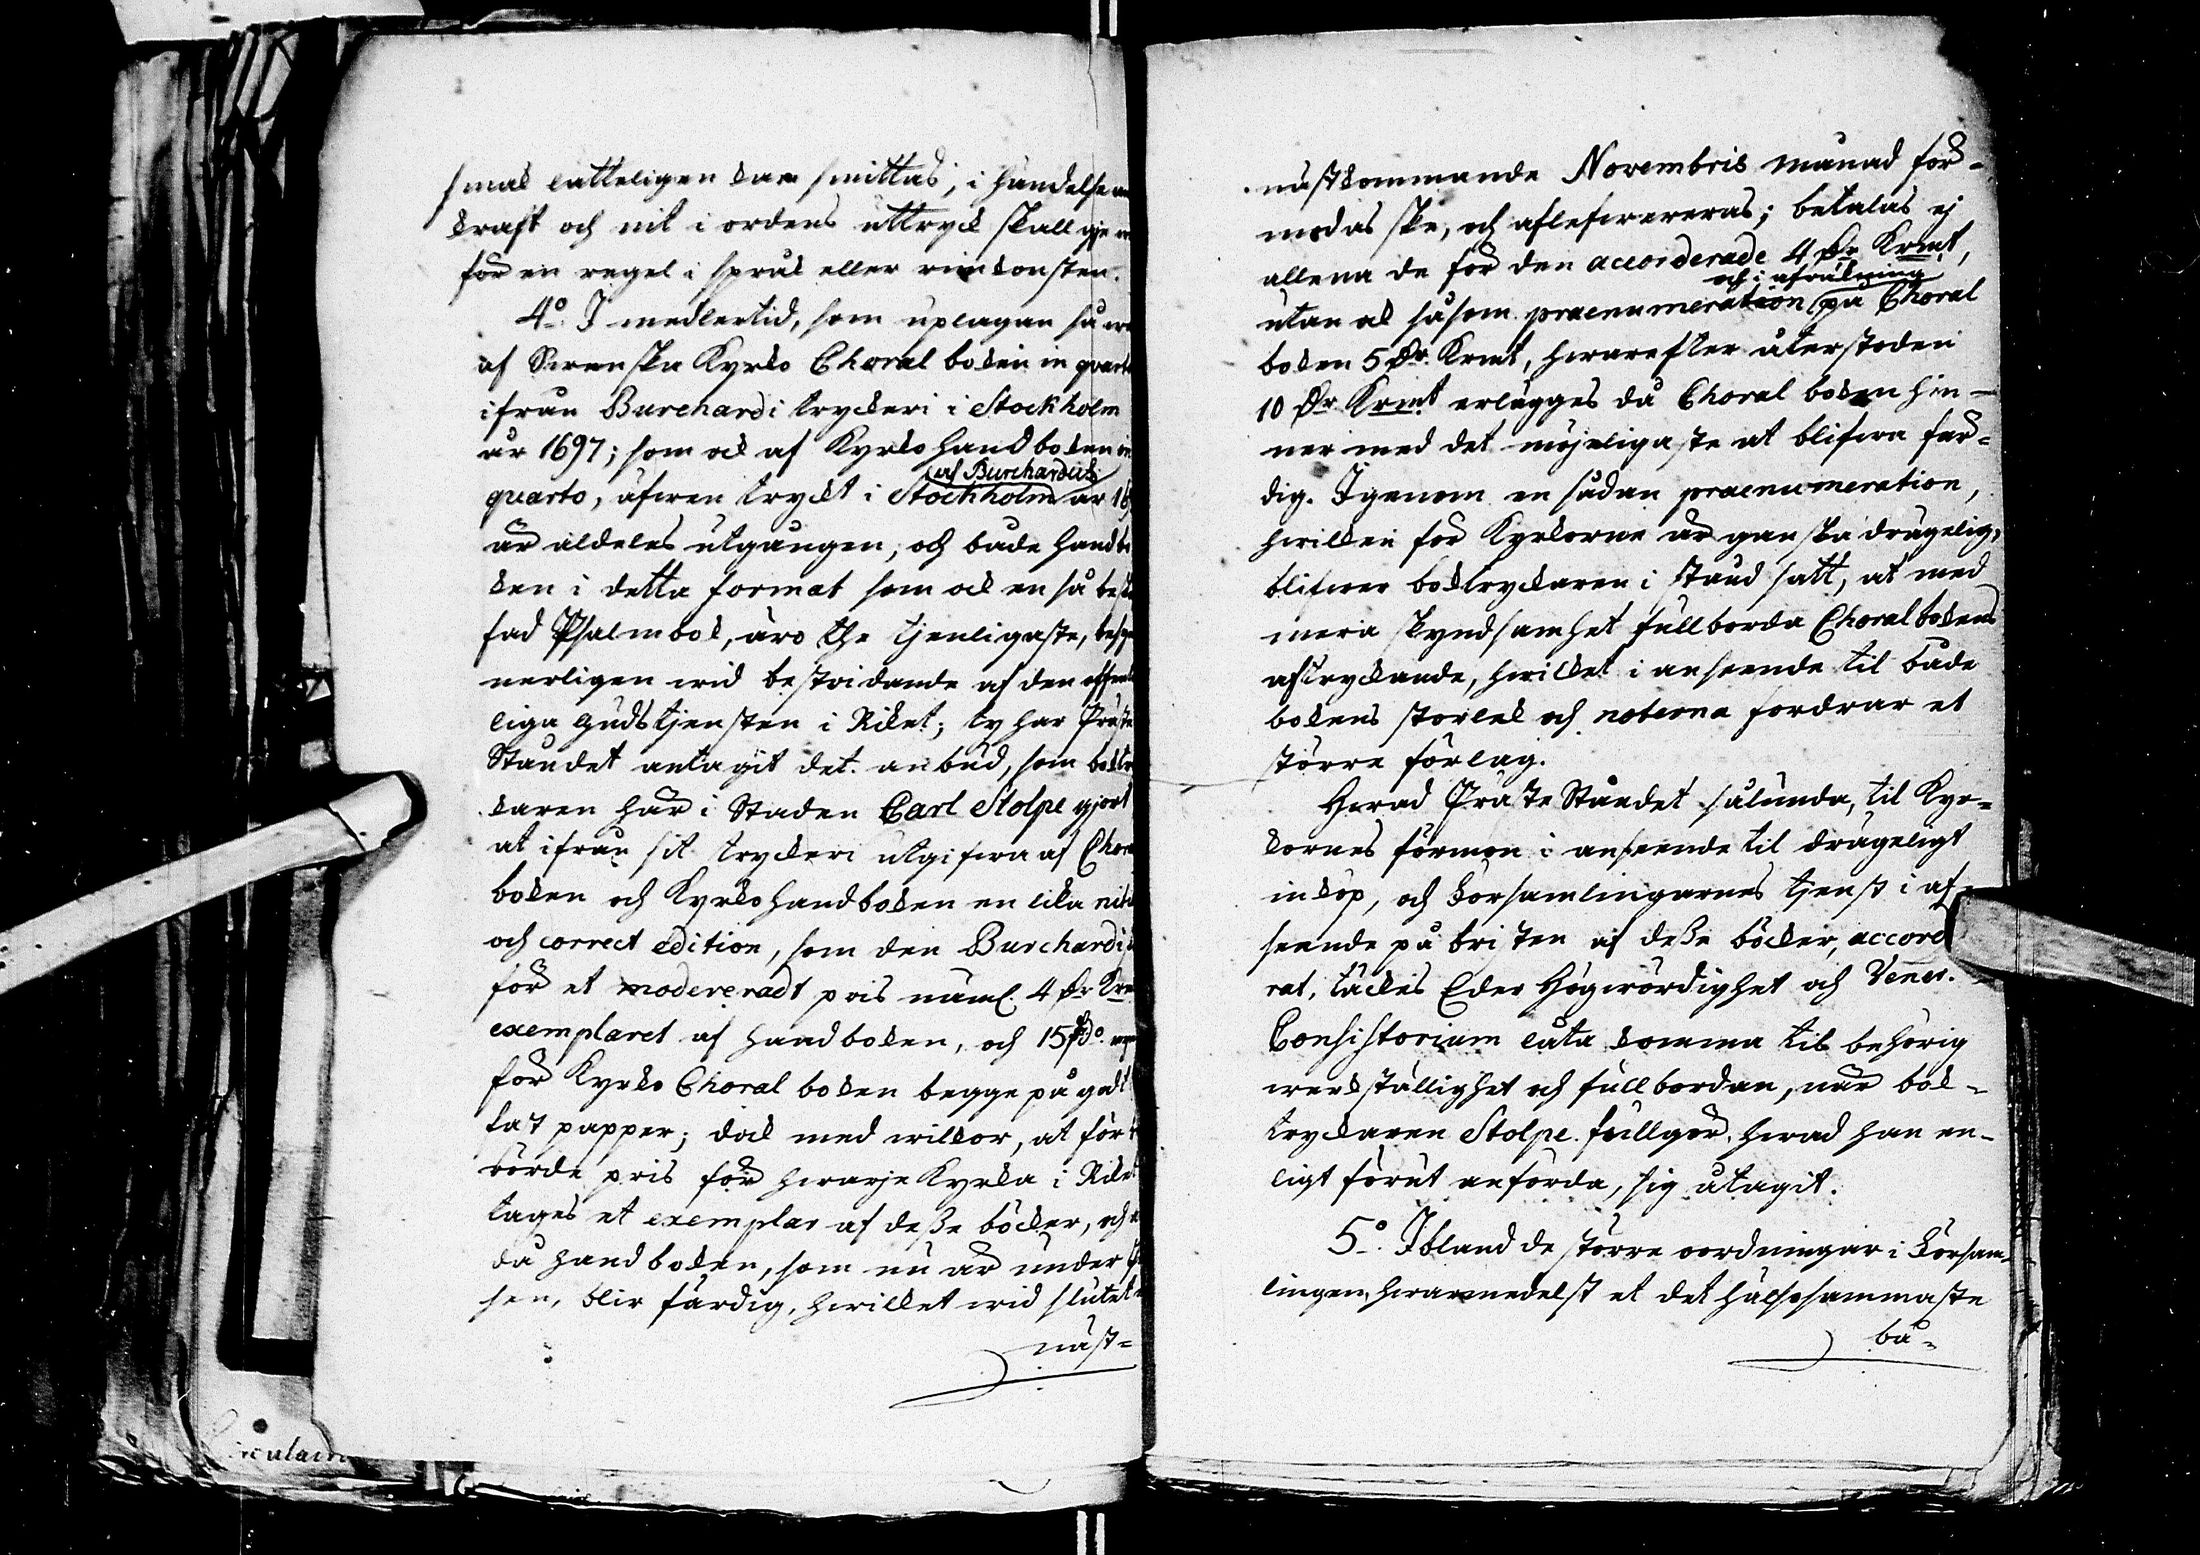 smak lätteligen kan smittas, i händelse
kraft och nit i ordens uttryck skall
för en regel i språk eller rimkonsten.
4:o I medlertid, som uplagan så
af Swenska Kyrko Choral boken in quarto
ifrån Burchardi tryckeri i Stockholm
år 1697; som ock af Kyrko Handboken in
af Burchardus
quarto, äfwen tryckt i Stockholm år
är aldeles utgången, och både handbo
ken i detta format som ock en så beska
fad Psalmbok, äro the tjenligaste,
nerligen wid bestridande af den offent
liga Gudstjensten i Riket; ty har Präste
Ståndet antagit det anbud, som boktry
karen här i Staden Carl Stolpe gjort
at ifrån sit tryckeri utgifwa af Choral
boken och Kyrkohandboken en lika
och correct edition, som den Burchardi
för et modereradt pris näml. 4 Dr Krmt
exemplaret af handboken, och 15 Do.
för Kyrko Choral boken begge på godt
fast papper; dock med wilkor, at för
rörde pris för hwarje Kyrka i Riket
tages et exemplar af deße böcker, och
då handboken, som nu är under
sen, blir färdig, hwilket wid slutet
näst=
nästkommande Novembris månad för=
modas ske, och aflefwereras; betalas ej
allena de för den accorderade 4 Dr Krmt,
och i afräkning
utan ock såsom praenumeration på Choral
boken 5 Dr. Krmt, hwarefter återstoden
10 Dr Krmt erlägges då Choral boken hin=
ner med det möjeligaste at blifwa fär=
dig. Igenom en sådan praenumeration,
hwilken för Kyrkorne är ganska drägelig,
blifwer boktryckaren i stånd satt, at med
mera skyndsamhet fullborda Choralbokens
aftryckande, hwilket i anseende til både
bokens storlek och noterna fordrar et
större förlag.
Hwad Präste Ståndet sålunda, til Kyr=
kornes förmon i anseende til drägeligt
inköp, och Församlingarnes tjenst i af=
seende på bristen af deße böcker, accord
rat, täckes Eder Högwördighet och Vener.
Consistorium låta komma til behörig
werkställighet och fullbordan, när bok=
tryckaren Stolpe fullgör, hwad han en=
ligt förut anförda, sig åtagit.
5:o Ibland de större oordningar i Försam=
lingen, hwarmedelst et det hälsosammaste
bå=